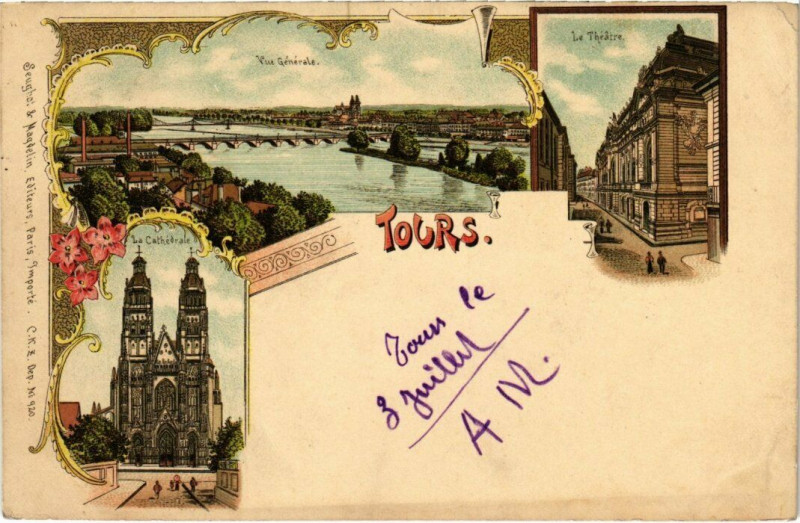 Vue Générale.
Le Théâtre.
TOURS.
La Cathédrale
Tours le
3 juillet
A M.
Editeurs, Paris, Importé. C.K.Z. Dep. No 920.